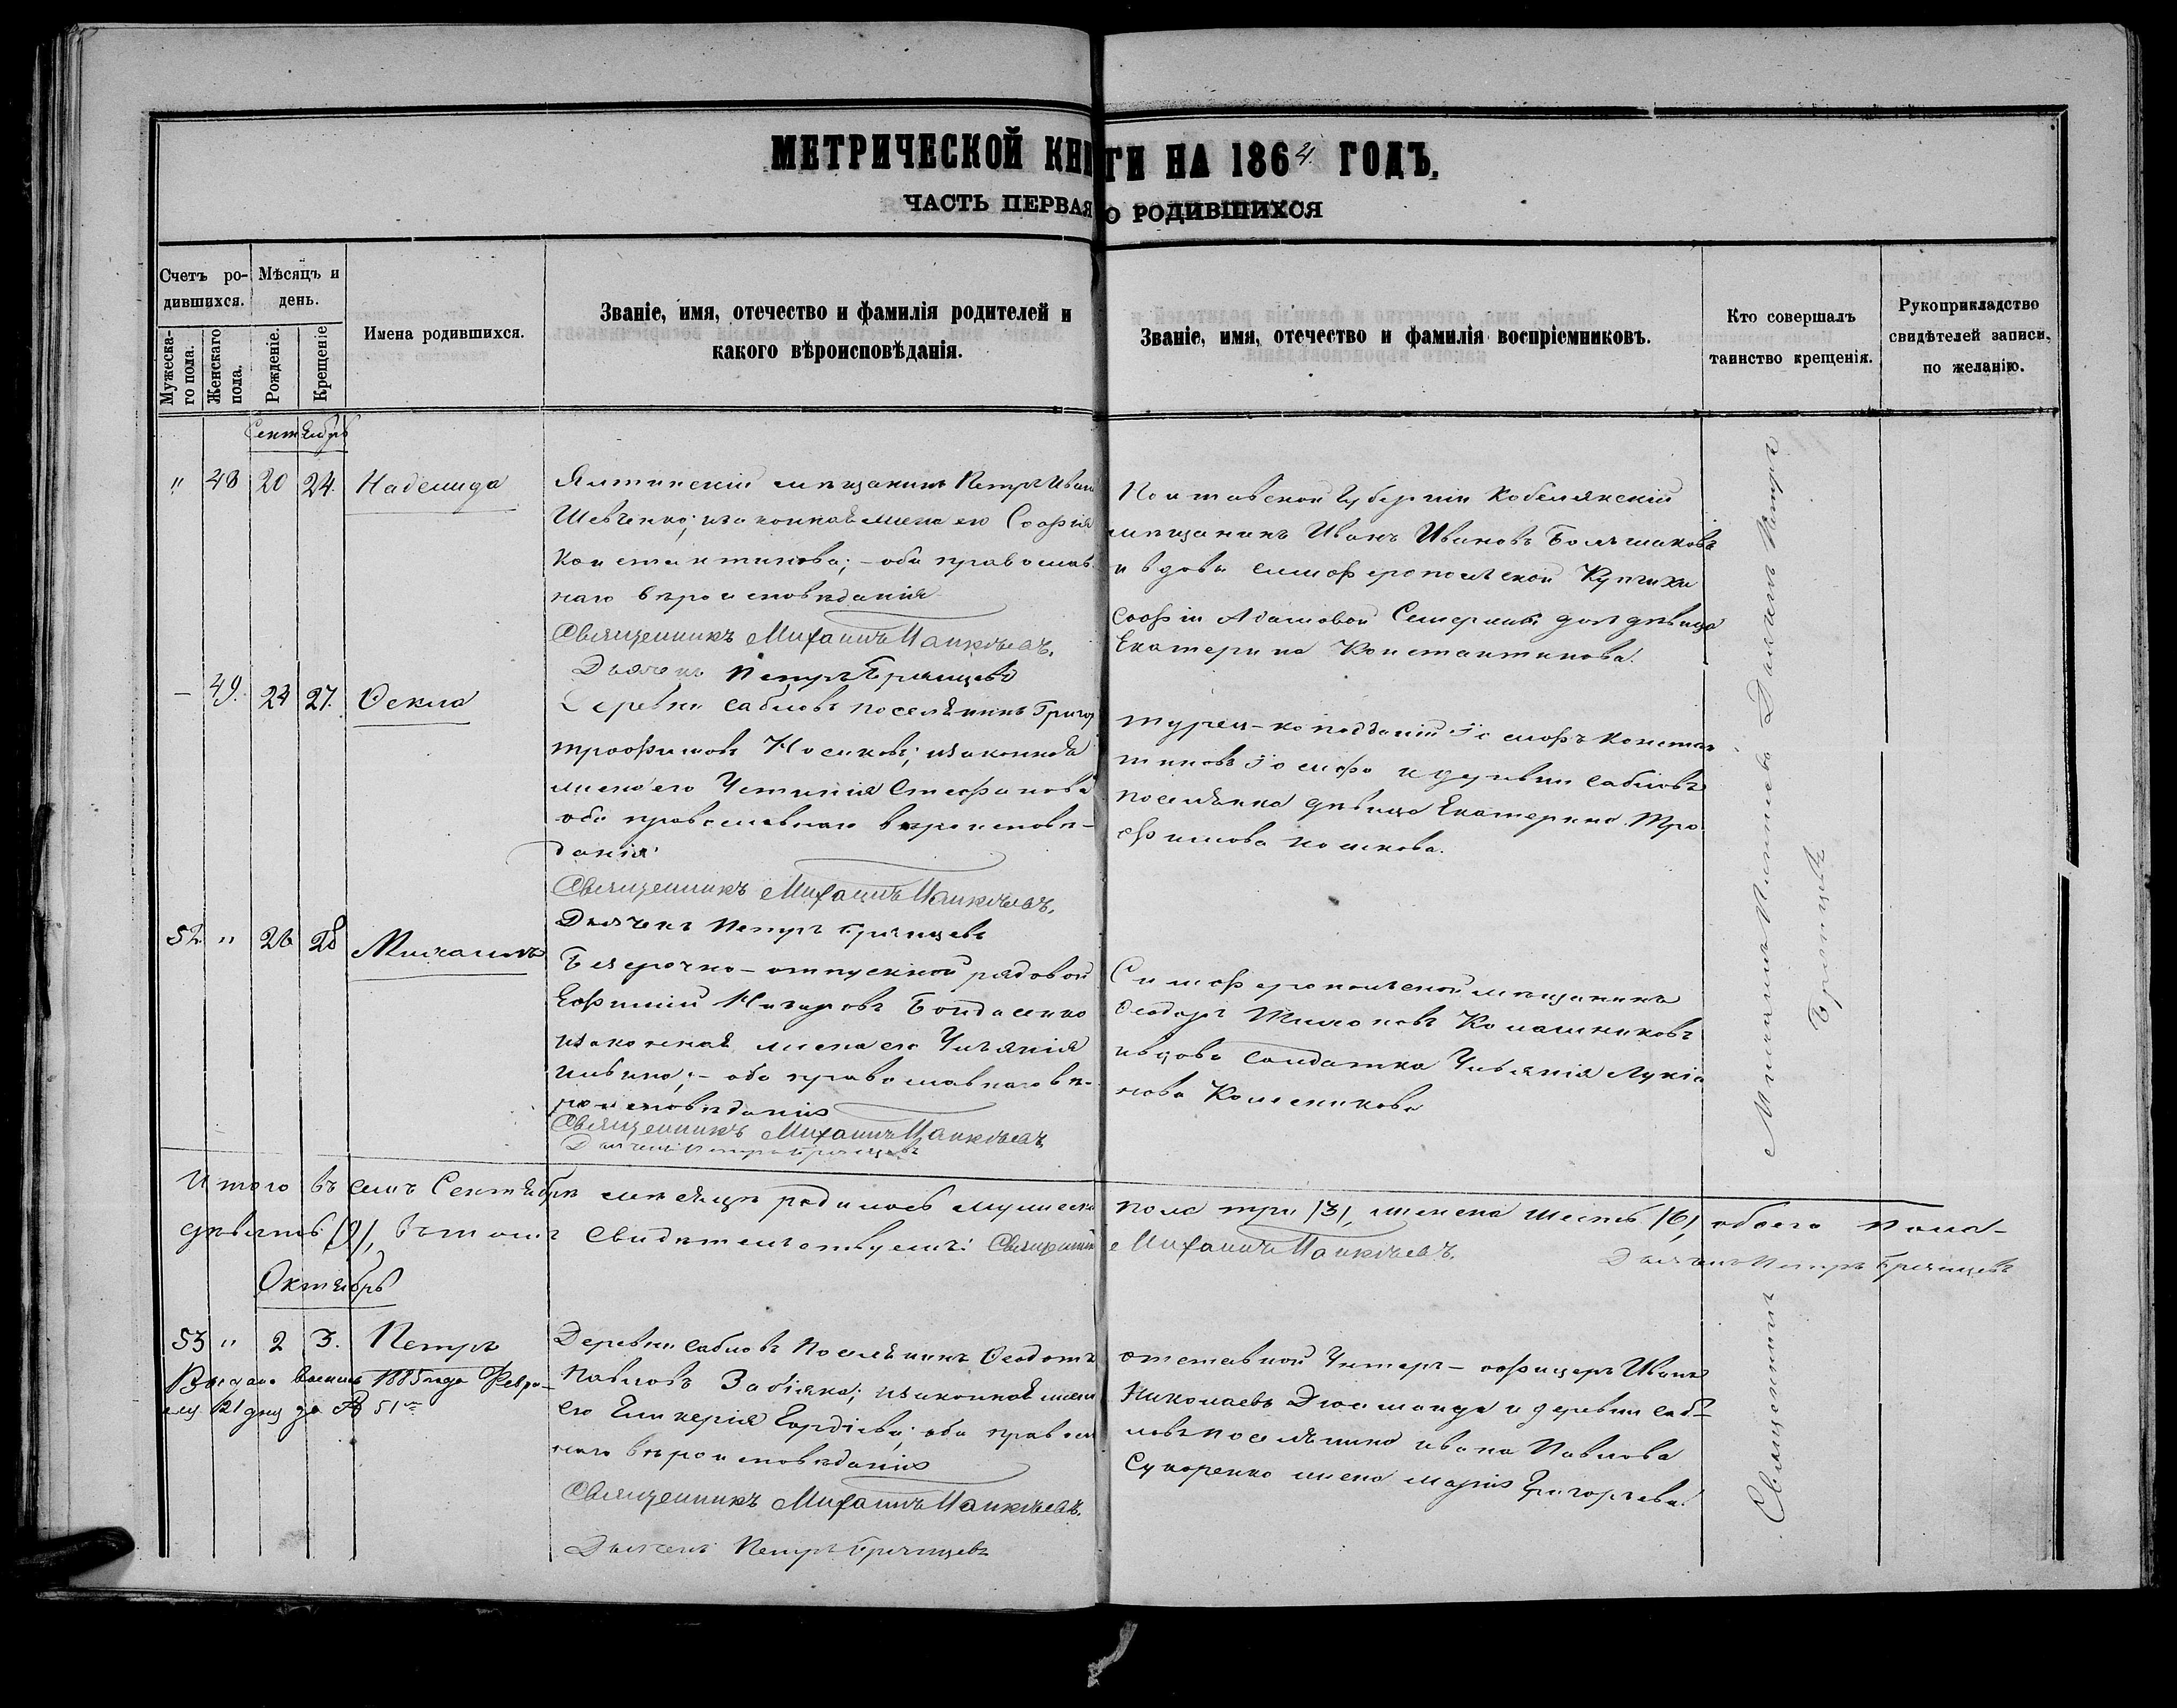 МЕТРИЧЕСКОЙ КНИГИ НА 1864 ГОДЪ.
ЧАСТЬ ПЕРВАЯ О РОДИВШИХСЯ
Счетъ родившихся.
Мужескаго пола.
Женскаго пола.
Мѣсяцъ и день.
Рожденіе.
Крещеніе
Имена родившихся.
Званіе, имя, отечество и фамилія родителей и
какого вѣроисповѣданія.
Званіе, имя, отечество и фамилія воспріемниковъ.
Кто совершалъ
таинство крещенія.
Рукоприкладство
свидѣтелей записи,
по желанію.
Сентябрь
" 48 20 24. Надежда
Ялтинскій мѣщанинъ Петръ Иван
Шевченко; и законная жена его Софія
Константинова; – оба православ
наго вѣроисповѣданія
Священникъ Михаилъ
Дьячекъ Петръ Брянцевъ
Полтавской Губерніи Кобелякскій
мѣщанинъ Иванъ Ивановъ Большаковъ
и вдовы симферопольской Купчихи
Софіи Адамовой дочь дѣвица
Екатерина Константинова.
– 49. 24 27. Ѳекла
Деревни Сабловъ поселянинъ Григор
Трофимовъ Носиковъ; и законная
жена его Стефанова
оба православнаго вѣроисповѣ-
данія
Священникъ Михаилъ
Дьячекъ Петръ Брянцевъ
Іосифъ Констан
тиновъ и деревни Сабловъ
поселянка дѣвица Екатерина Тро
фимова Носикова.
52. " 26 28 Михаилъ
Безсрочно-отпускной рядовой
Ефимій Бондаренко
и законная жена его Ульянія
Ильина; – оба православнаго вѣ-
роисповѣданія
Священникъ Михаилъ
Дьячекъ Петръ Брянцевъ
Симферопольской мѣщанинъ
Ѳеодоръ
и вдова Солдатка Ульянія Лукіа
нова Колесникова
Итого въ семъ Сентябрѣ мѣсяцѣ родилось мужеска пола три /3/, женска шесть /6/, обоего пола –
девять /9/, въ томъ свидѣтельствуемъ: Священникъ Михаилъ
Дьячекъ Петръ Брянцевъ
Октябрь
53 " 2 3. Петръ
Выдано 1885 года Февра-
ля 21 дня за № 51
Деревни Сабловъ Поселянинъ Ѳеодотъ
Павловъ Забіяка; и законная жена
его Гликерія Гордіева; оба правосл
наго вѣроисповѣданія
Священникъ Михаилъ
Дьячекъ Петръ Брянцевъ
отставной Унтеръ-офицеръ Иванъ
Николаевъ и деревни Саб-
ловъ поселянина Ивана Павлова
жена Марія Григорьева.
Священникъ Михаилъ Дьячекъ Петръ
Брянцевъ